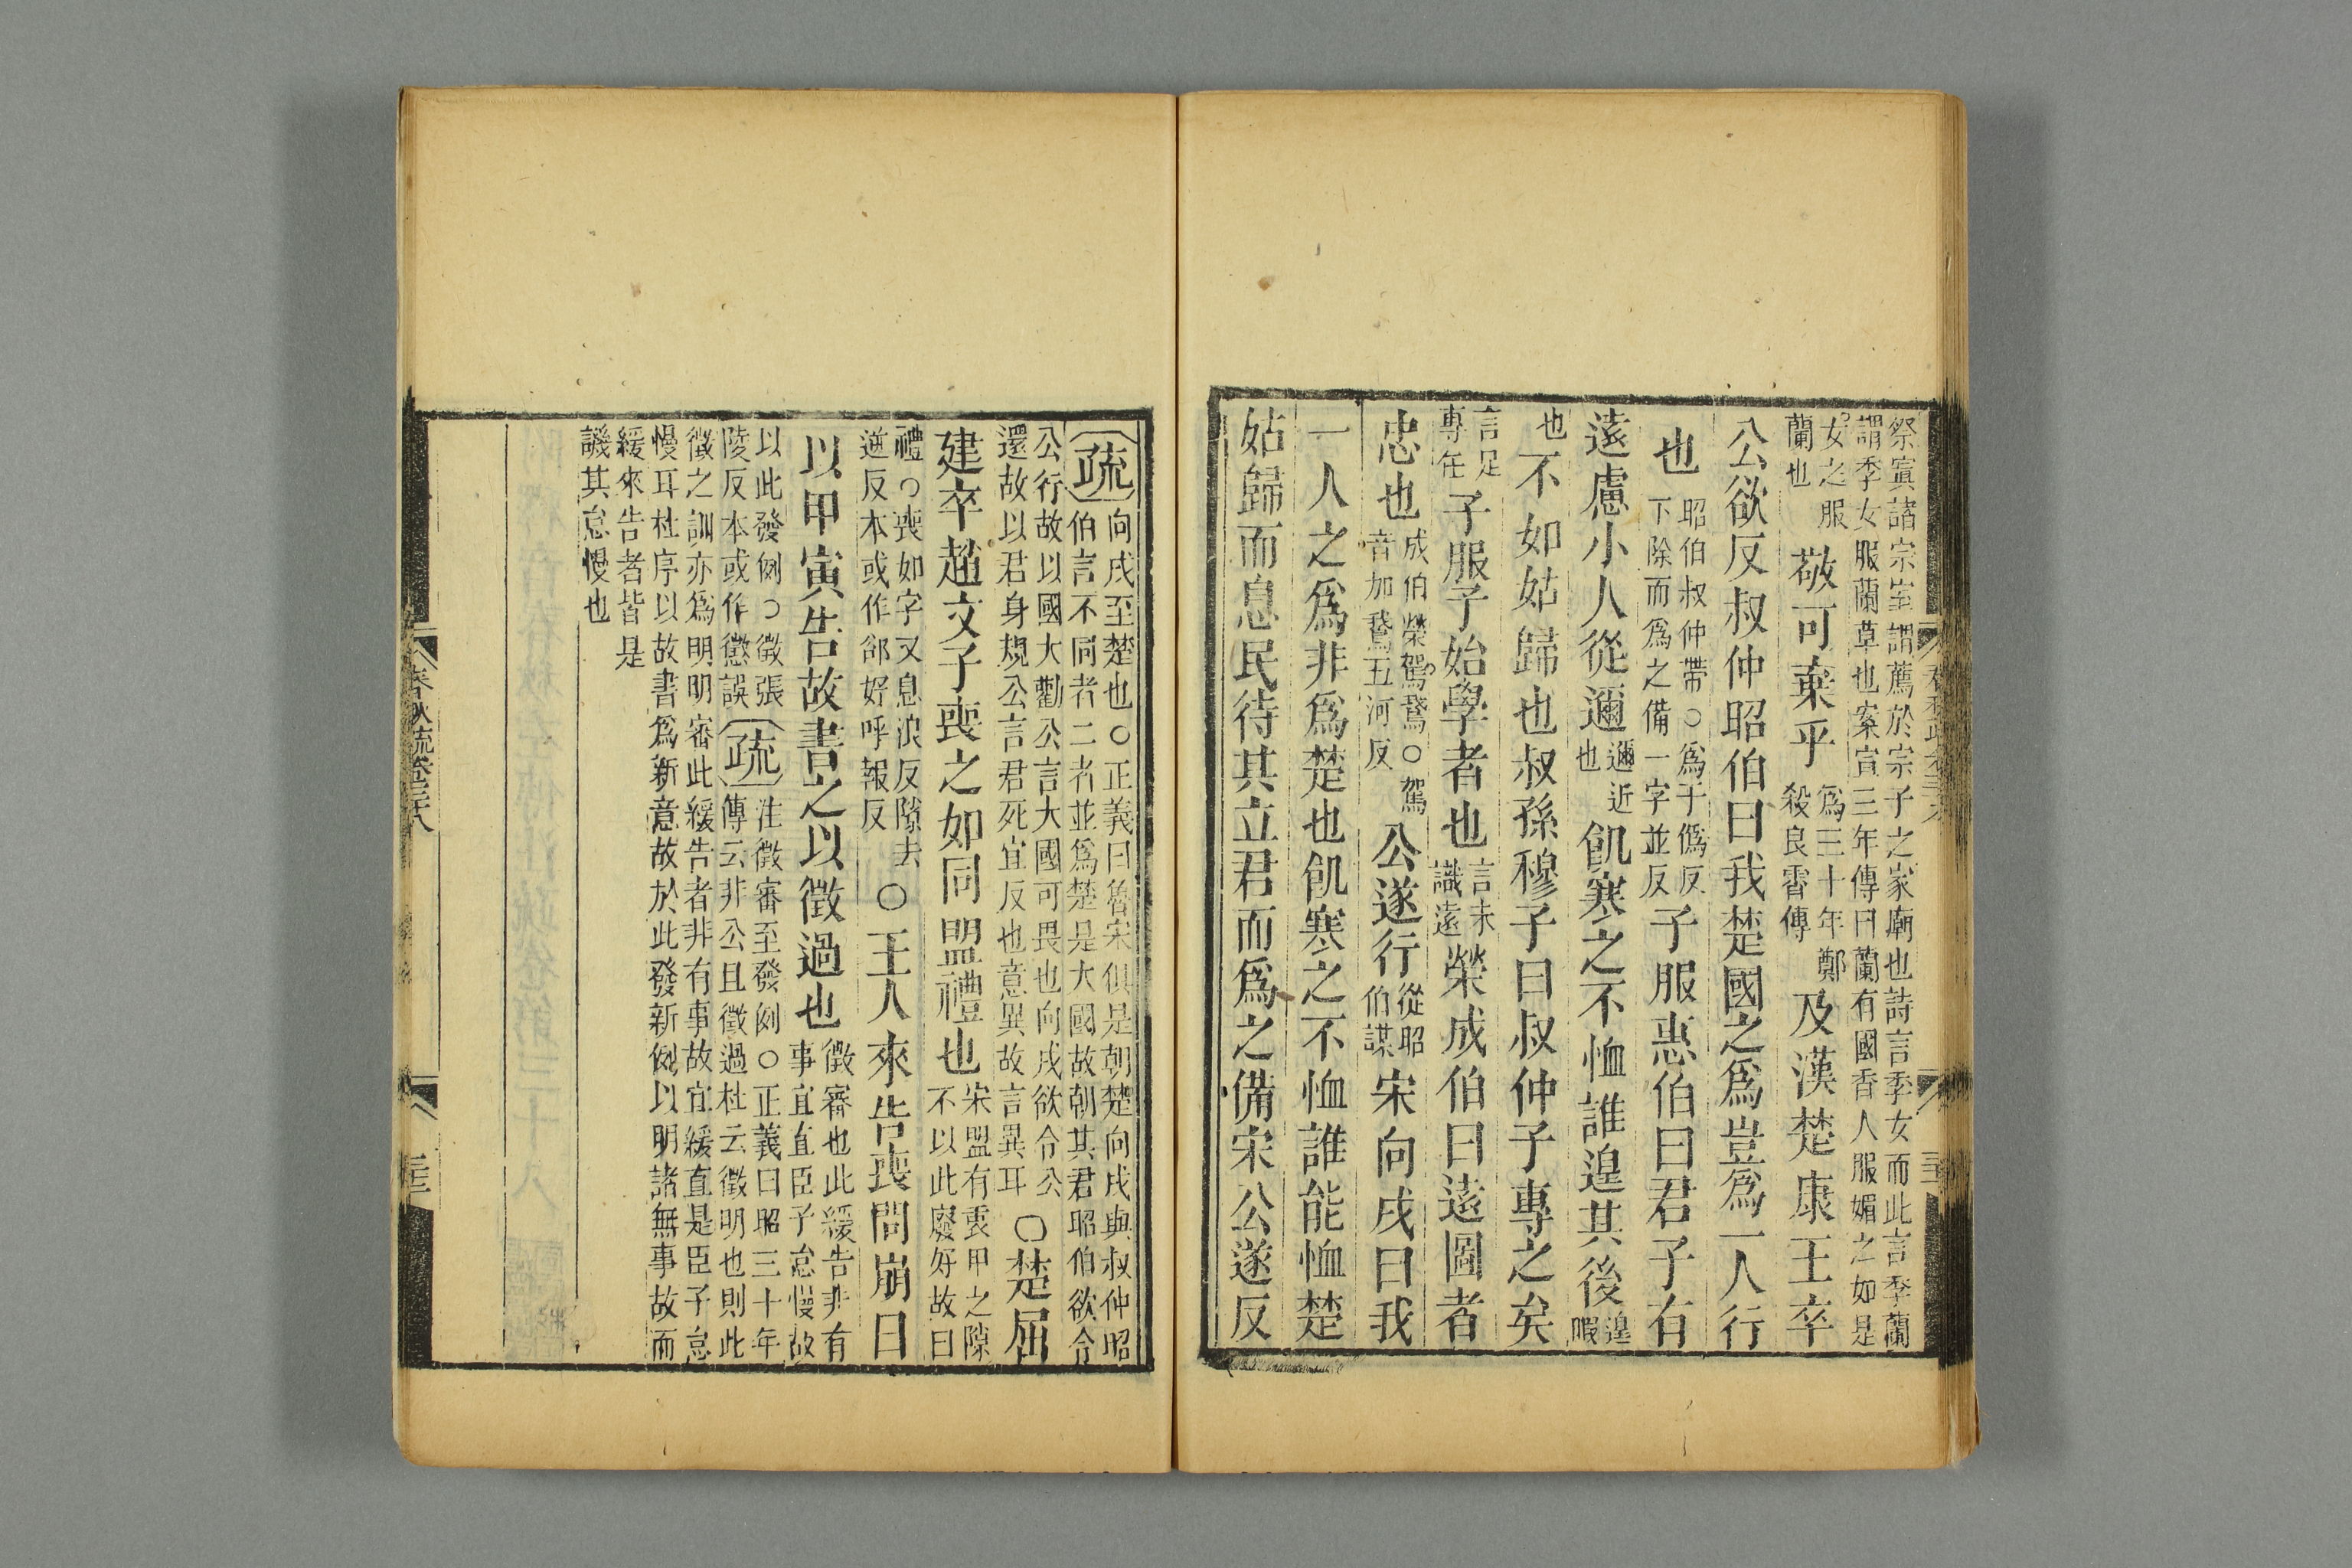 祭寘諸宗室謂薦於宗子之家廟也詩言季女而此言季蘭
謂季女服蘭草也案宣三年傳曰蘭有國香人服媚之如是
女之服
蘭也
敬可棄乎
爲三十年鄭
殺良霄傳
及漢楚康王卒
公欲反叔仲昭伯曰我楚國之爲豈爲一人行
也
昭伯叔仲帶○爲于僞反
下除而爲之備一字並反
子服惠伯曰君子有
遠慮小人從邇
邇近
也
飢寒之不恤誰遑其後
遑
暇
也
不如姑歸也叔孫穆子曰叔仲子專之矣
言足
專任
子服子始學者也
言未
識遠
榮成伯曰遠圖者
忠也
成伯榮駕鵞○駕
音加鵞五河反
公遂行
從昭
伯謀
宋向戌曰我
一人之爲非爲楚也飢寒之不恤誰能恤楚
姑歸而息民待其立君而爲之備宋公遂反
疏
向戌至楚也○正義曰魯宋俱是朝楚向戌與叔仲昭
伯言不同者二者並爲楚是大國故朝其君昭伯欲令
公行故以國大勸公言大國可畏也向戌欲令公
還故以君身規公言君死宜反也意異故言異耳
○楚屈
建卒趙文子喪之如同盟禮也
宋盟有衷甲之隙
不以此廢好故曰
禮○喪如字又息浪反隙去
逆反本或作郤好呼報反
○王人來告喪問崩日
以甲寅告故書之以徵過也
徵審也此緩告非有
事宜直臣子怠慢故
以此發例○徵張
陵反本或作懲誤
疏
注徵審至發例○正義曰昭三十年
傳云非公且徵過杜云徵明也則此
徵之訓亦爲明明審此緩告者非有事故宜緩直是臣子怠
慢耳杜序以故書爲新意故於此發新例以明諸無事故而
緩來告者皆是
譏其怠慢也
春秋疏卷三十八